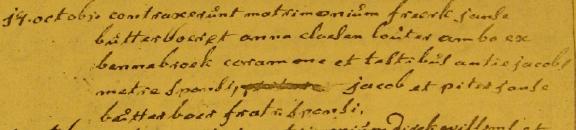 14. octobris contraxerunt matrimonium freerk janse
butterboer et anna claesen louter ambo ex
bennebroek coram me et testibus antie jacobs
matre sponsi, jacob et piter janse
butter boer fratr sponsi,